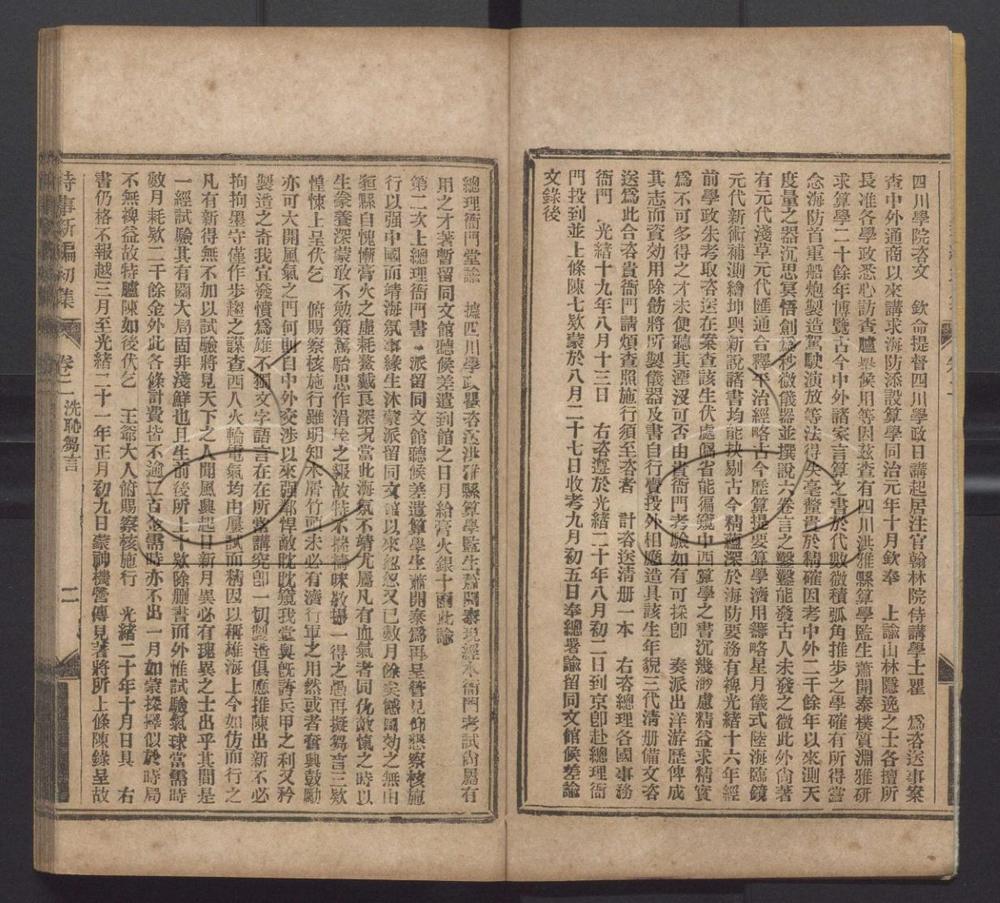 四川學院咨文　欽命提督四川學政日講起居注官翰林院侍講學士瞿　爲咨送事案
查中外通商以來講求海防添設算學同治元年十月欽奉　上諭山林隱逸之士各擅所
長准各學政悉心訪查臚舉候用等因茲查有四川洪雅縣算學監生蕭開泰樸質淵雅研
求算學二十餘年博覽古今中外諸家言算之書於代數微積弧角推步之學確有所得嘗
念海防首重船炮製造駕駛演放等法得失毫釐貴於精確因考中外二千餘年以來測天
度量之器沉思冥悟創爲秒微儀器並撰說六卷言之鑿鑿能發古人未發之微此外尚著
有元代淺草元代匯通合釋平治經略古今歷算提要算學濟用籌略星月儀式陸海臨鏡
元代新術補測繪坤輿新說諸書均能抉剔古今精蘊深於海防要務有裨光緒十六年經
前學政朱考取咨送在案查該生伏處偏省能徧窺中西算學之書沉幾渺慮精益求精實
爲不可多得之才未便聽其湮沒可否由貴衙門考驗如有可採卽　奏派出洋游歷俾成
其志而資効用除飭將所製儀器及書自行賷投外相應造具該生年貌三代清册備文咨
送爲此合咨貴衙門請煩查照施行須至咨者　計咨送清册一本　右咨總理各國事務
衙門　光緒十九年八月十三日　右咨遵於光緒二十年八月初二日到京卽赴總理衙
門投到並上條陳七欵蒙於八月二十七日收考九月初五日奉總署諭留同文館候差諭
文錄後
總理衙門堂諭　據四川學政瞿咨送洪雅縣算學監生蕭開泰現經本衙門考試尚屬有
用之才著暫留同文館聽候差遣到館之日月給膏火銀十兩此諭
第二次上總理衙門書　派留同文館聽候差遣算學生蕭開泰爲再呈管見仰懇察核施
行以强中國而靖海氛事緣生沐蒙派留同文館以來忽忽又已數月餘矣感圖効之無由
循縣自愧慚膏火之虛耗鰲戴良深況當此海氛不靖尤屬凡有血氣者同仇敵愾之時以
生豢養深蒙敢不勉策駑駘思作涓埃之報故特不揣檮昧敬攄一得之愚再擬芻言三欵
惶悚上呈伏乞　俯賜察核施行雖明知木屑竹頭未必有濟行軍之用然或者奮興鼓勵
亦可大開風氣之門何則自中外交涉以來强鄰悍敵眈眈窺我堂奥旣誇兵甲之利又矜
製造之奇我宜發憤爲雄不獨文字語言在在所當講究卽一切製造俱應推陳出新不必
拘拘墨守僅作步趨之謀查西人火輪電氣均由屢試而精因以稱雄海上今如仿而行之
凡有新得無不加以試驗將見天下之人聞風興起日新月異必有瑰異之士出乎其間是
一經試驗其有關大局固非淺鮮也且生前後所上十欵除膽書而外惟試驗氣球當需時
數月耗欵二千餘金外此各條計費皆不逾二百金需時亦不出一月如蒙採擇似於時局
不無裨益故特臚陳如後伏乞　王爺大人俯賜察核施行　光緒二十年十月日具　右
書仍格不報越三月至光緒二十一年正月初九日蒙神機營傳見著將所上條陳錄呈故
時事新編初集　卷二　洗恥芻言　二